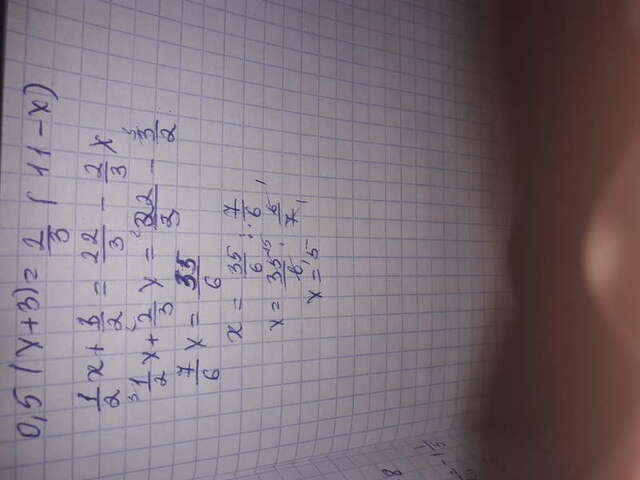 0,5 (x+3) = 2/3 (11-x)
1/2 x + 3/2 = 22/3 - 2/3 x
1/2 x + 2/3 x = 22/3 - 3/2
7/6 x = 35/6
x = 35/6 : 7/6
x = 35/6 · 6/7
x = 5
8
-1 1/5